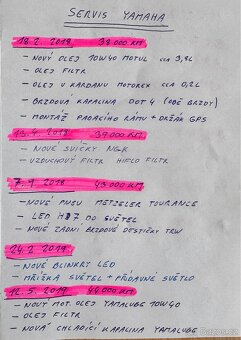 SERVIS YAMAHA
18.2 2018 38 000 KM
- NOVÝ OLEJ 10W40 MOTUL CCA 3,8L
- OLEJ FILTR
- OLEJ V KARDANU MOTOREX CCA 0,2L
- BRZDOVA KAPALINA DOT 4 (OBĚ BRZDY)
- MONTÁŽ PADACÍHO RÁMU + DRŽÁK GPS
2018 39 000 KM
- NOVÉ SVÍČKY NGK
- VZDUCHOVÝ FILTR HIFLO FILTR
2018 43 000 KM
- NOVÉ PNEU METZELER TOURANCE
- LED H7 DO SVĚTEL
- NOVÉ ZADNÍ BRZDOVÉ DESTIČKY TRW
24.2 2019
- NOVÉ BLINKRY LED
- MŘÍŽKA SVĚTEL + PŘÍDAVNÉ SVĚTLO
12.5 2019 44 000 KM
- NOVÝ MOT. OLEJ YAMALUBE 10W40
- OLEJ FILTR
- NOVÁ CHLADÍCÍ KAPALINA YAMALUBE